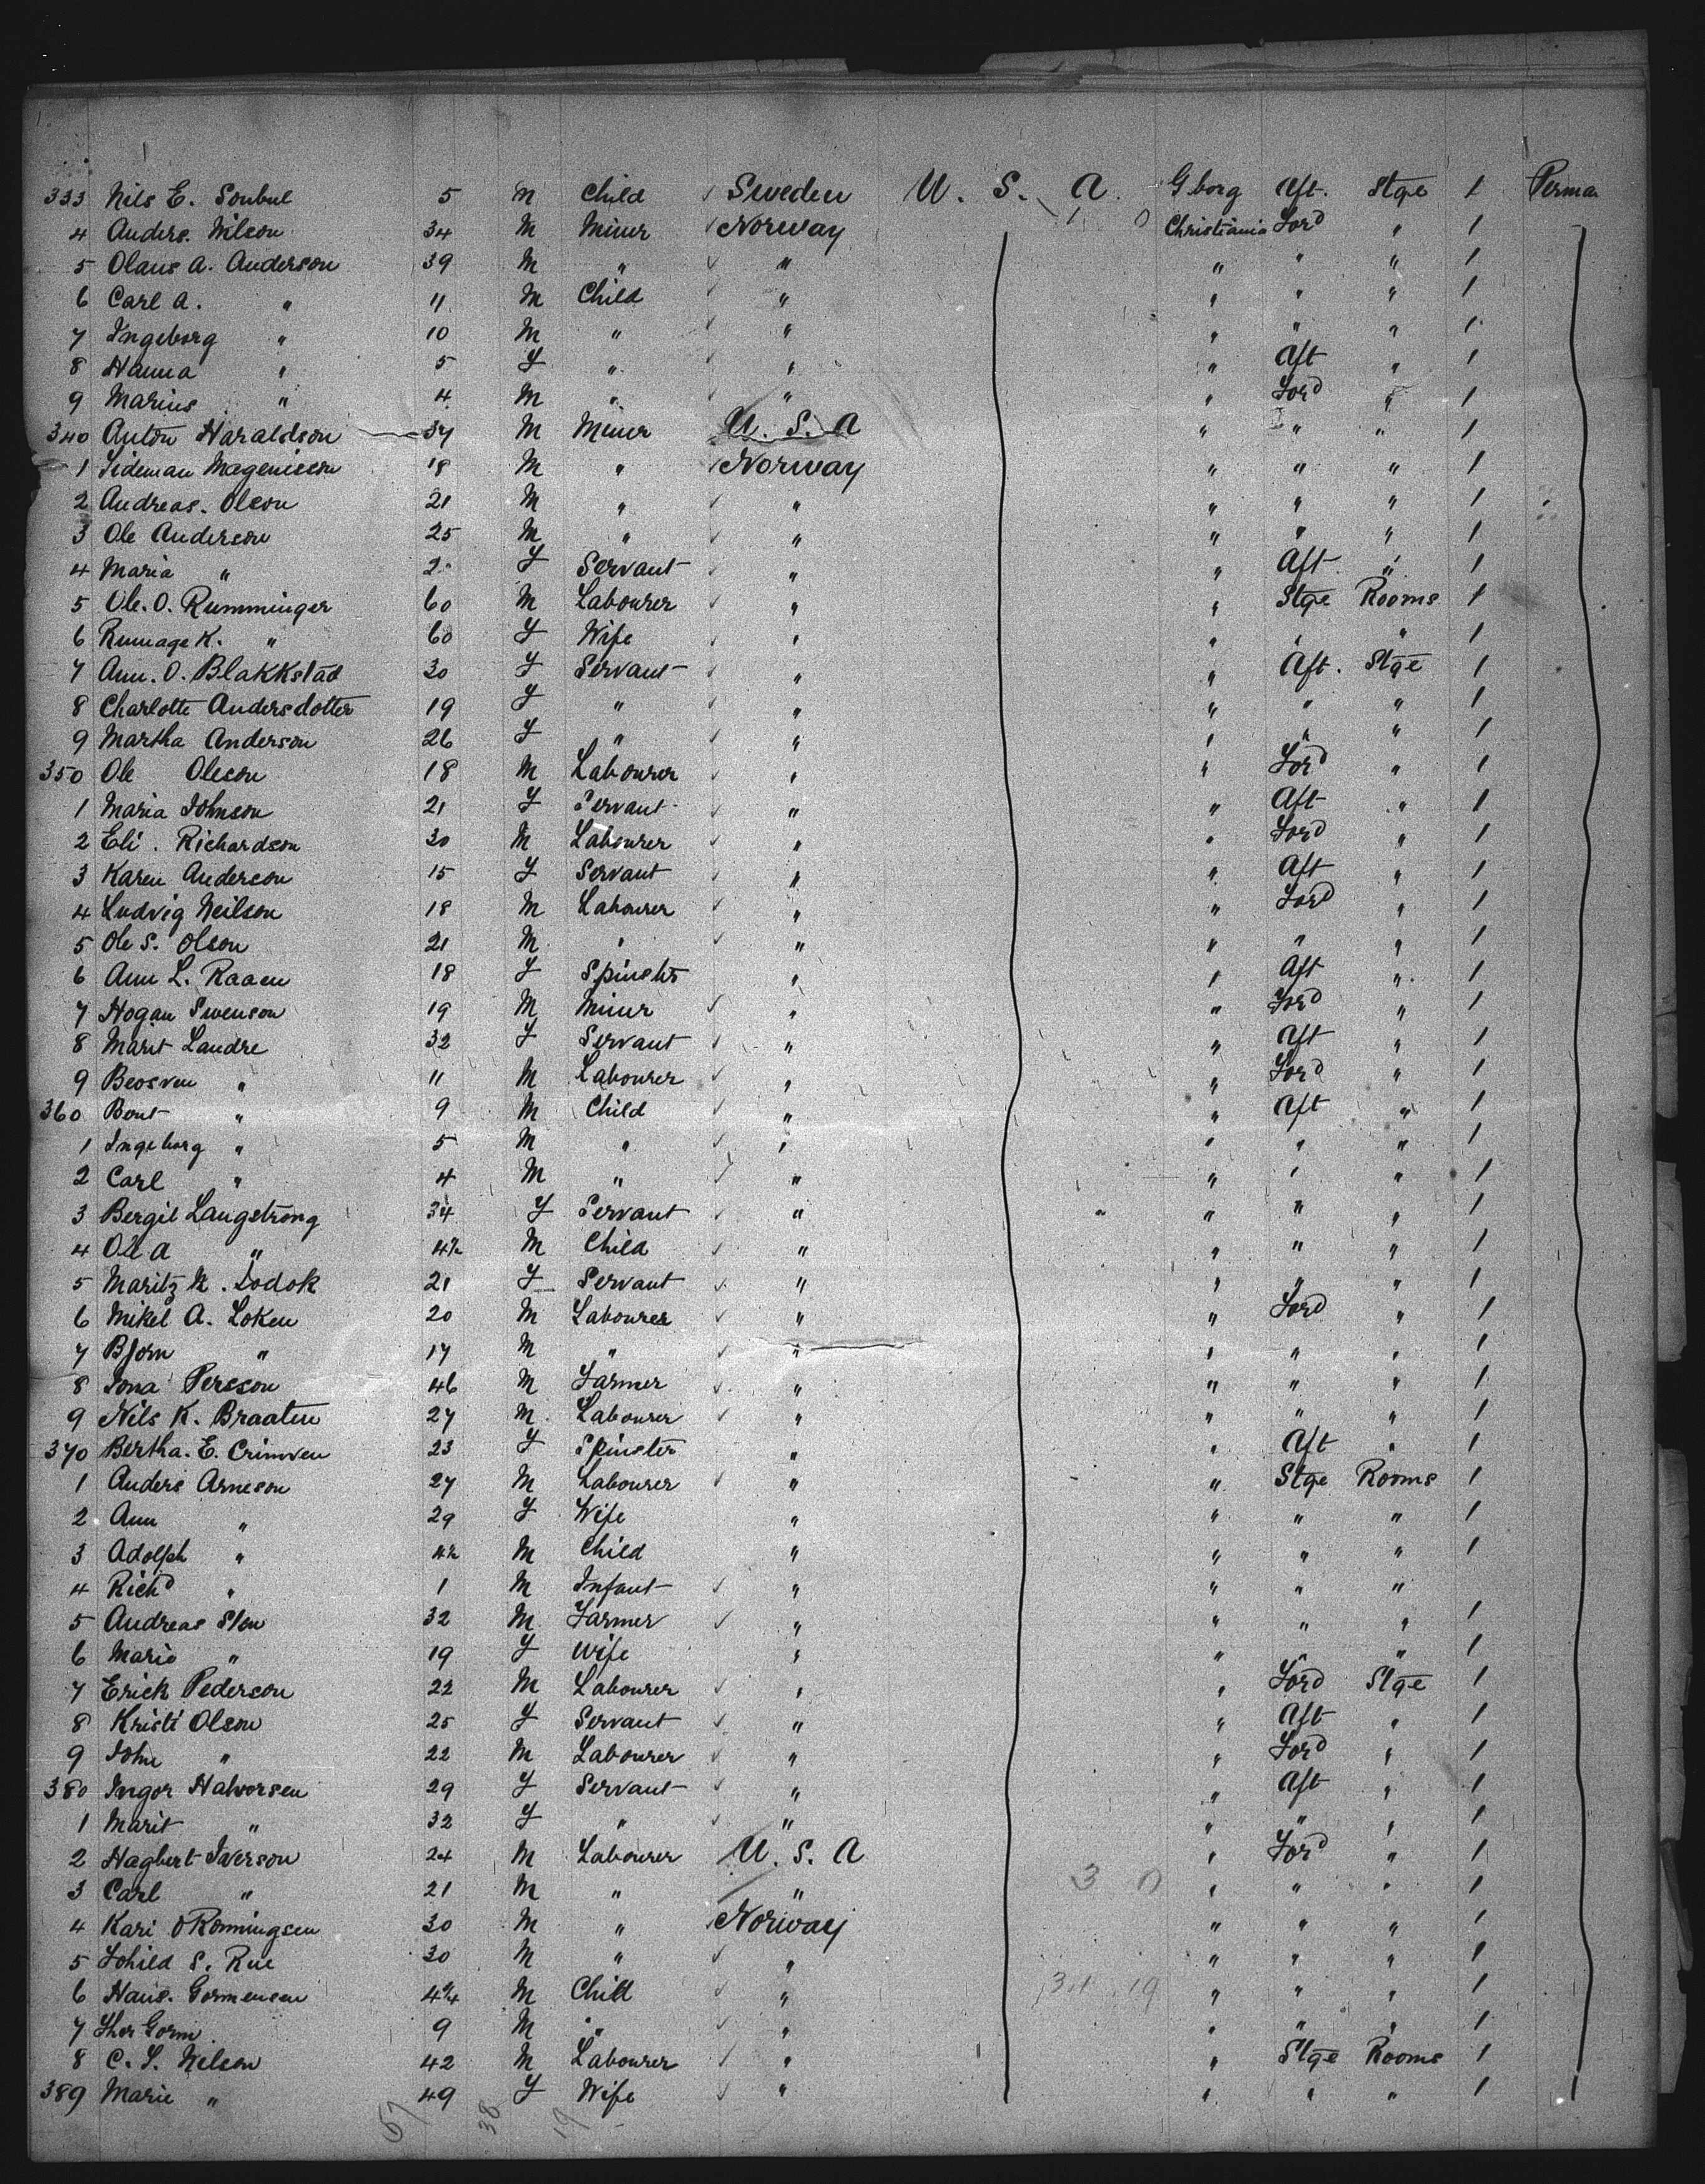 333 Nils E. Sonbul 5 M Child Sweden U. S. A. Gborg Aft. Stge 1 Perma
4 Anders. Nilson 34 M Miner Norway 1 0 Christiania Ford " 1
5 Olaus A. Anderson 39 M " " " " " 1
6 Carl A. " 11 M Child " " " " 1
7 Ingeborg " 10 M " " " " " 1
8 Hanna " 5 F " " " Aft " 1
9 Marius " 4 M " " " Ford " 1
340 Anton Haraldson 37 M Miner U. S. A " " " 1
1 Sideman Magenisson 18 M " Norway " " " 1
2 Andreas. Olson 21 M " " " " " 1
3 Ole Anderson 25 M " " " " " 1
4 Maria " 2 F Servant " " Aft " 1
5 Ole. O. Rumminger 60 M Labourer " " Stge Rooms 1
6 Runnage K. " 60 F Wife " " " " 1
7 Ann. O. Blakkstad 30 F Servant " " Aft. Stge 1
8 Charlotte Andersdotter 19 F " " " " " 1
9 Martha Anderson 26 F " " " " " 1
350 Ole Oleson 18 M Labourer " " Ford " 1
1 Maria Johnson 21 F Servant " " Aft " 1
2 Eli. Richardson 30 M Labourer " " Ford " 1
3 Karen Anderson 15 F Servant " " Aft " 1
4 Ludvig Neilson 18 M Labourer " " Ford " 1
5 Ole S. Olson 21 M " " " " " 1
6 Ann L. Raaen 18 F Spinstr " " Aft " 1
7 Hogan Swenson 19 M Miner " " Ford " 1
8 Marit Landre 32 F Servant " " Aft " 1
9 Beosven " 11 M Labourer " " Ford " 1
360 Bont " 9 M Child " " Aft " 1
1 Ingeborg " 5 M " " " " " 1
2 Carl " 4 M " " " " " 1
3 Bergit Langstrong 34 F Servant " " " " 1
4 Ola " 4½ M Child " " " " 1
5 Maritz N. Lodok 21 F Servant " " " " 1
6 Mikel A. Loken 20 M Labourer " " Ford " 1
7 Bjorn " 17 M " " " " " 1
8 Jona Persson 46 M Farmer " " " " 1
9 Nils K. Braaten 27 M Labourer " " " " 1
370 Bertha. E. Crimven 23 F Spinster " " Aft " 1
1 Anders Arneson 27 M Labourer " " Stge Rooms 1
2 Ann " 29 F Wife " " " " 1
3 Adolph " 4½ M Child " " " " 1
4 Richd " 1 M Infant " " " "
5 Andreas Slon 32 M Farmer " " " " 1
6 Mario " 19 F Wife " " " " 1
7 Erick Pederson 22 M Labourer " " Ford Stge 1
8 Kristi Olson 25 F Servant " " Aft " 1
9 John " 22 M Labourer " " Ford " 1
380 Ingor Halvorsen 29 F Servant " " Aft " 1
1 Marit " 32 F " " " " " 1
2 Hagbert Iverson 24 M Labourer U. S. A " Ford " 1
3 Carl " 21 M " " 3 0 " " " 1
4 Kari O Ronningsen 30 M " Norway " " " 1
5 S. Rue 30 M " " " " " 1
6 Hans. Gormensen 4¾ M Child " 31 19 " " " 1
7 Gorm 9 M " " " " " 1
8 C. S. Nelson 42 M Labourer " " Stge Rooms 1
389 Marie " 49 F Wife " " " " 1
57 38 19